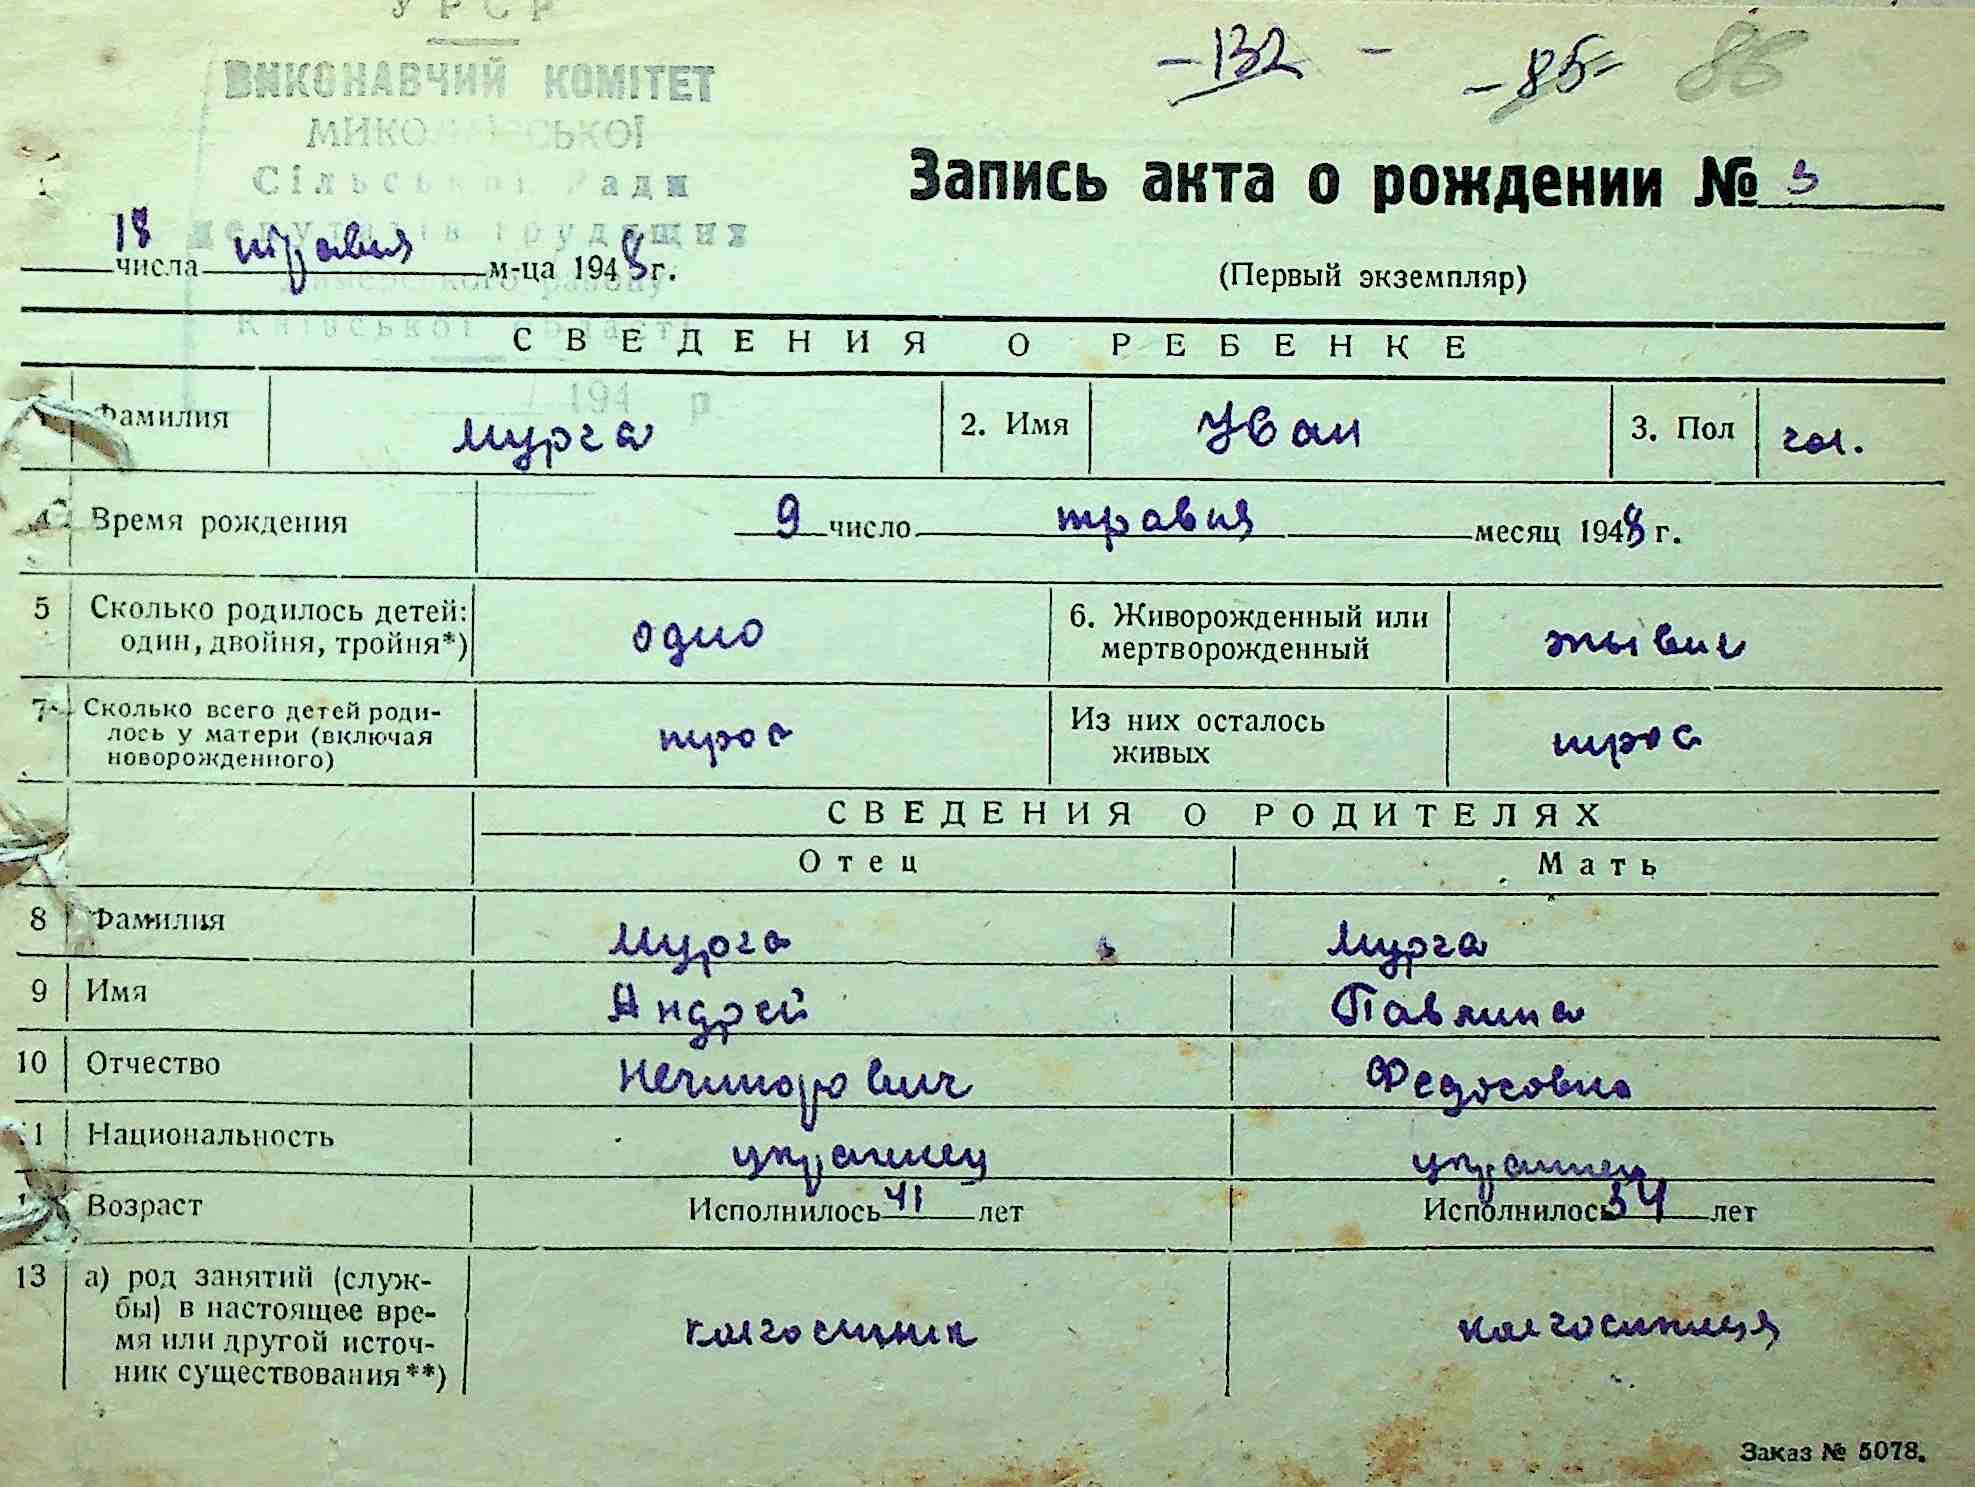 УРСР
ВИКОНАВЧИЙ КОМІТЕТ
СЬКОЇ
Сільської Ради
депутатів трудящих
району
Київської області
194 р
-132 -
-85-
86
Запись акта о рождении № 3
18 числа травня м-ца 1948 г.
(Первый экземпляр)
СВЕДЕНИЯ О РЕБЕНКЕ
Фамилия Мурга 2. Имя Иван 3. Пол чол.
4 Время рождения 9 число травня месяц 1948 г.
5 Сколько родилось детей: один, двойня, тройня*) одно 6. Живорожденный или мертворожденный
7 Сколько всего детей родилось у матери (включая новорожденного) трое Из них осталось живых трое
СВЕДЕНИЯ О РОДИТЕЛЯХ
Отец Мать
8 Фамилия Мурга Мурга
9 Имя Андрей Павлина
10 Отчество Нечипорович Федосовна
11 Национальность украинец украинец
Возраст Исполнилось 41 лет Исполнилось 34 лет
13 а) род занятий (служ-
бы) в настоящее вре-
мя или другой источ-
ник существования**)
колгоспник колгоспниця
Заказ № 5078.